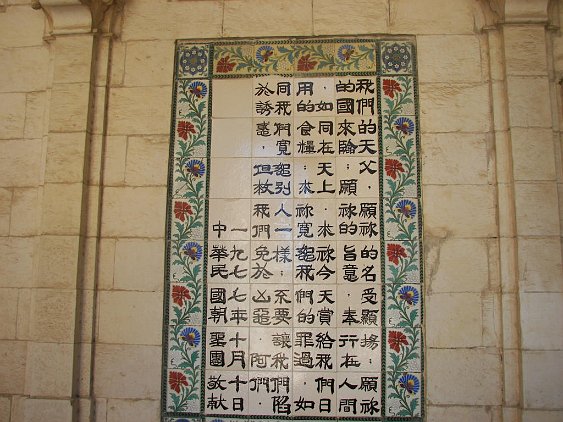 我們的天父,願祢的名受顯揚,願祢
的國來臨,願祢的旨意,奉行在人間
,如同在天上。求祢今天賞給我們日
用的食糧,求祢寬恕我們的罪過,如
同我們寬恕別人一樣,不要讓我們陷
於誘惑,但救我們免於凶惡。阿們。
一九七七年十月十日
中華民國朝聖團敬獻